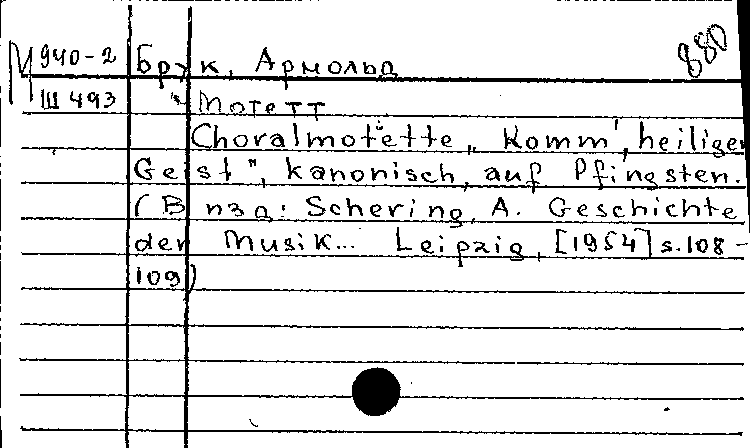 880
М 940-2 Брук, Арнольд
Ш 493 Мотетт
Choralmotette „Komm', heiliger
Geist", kanonisch, auf Pfingsten.
(В изд: Schering, A. Geschichte
der Musik... Leipzig, [1954] s.108-
109)